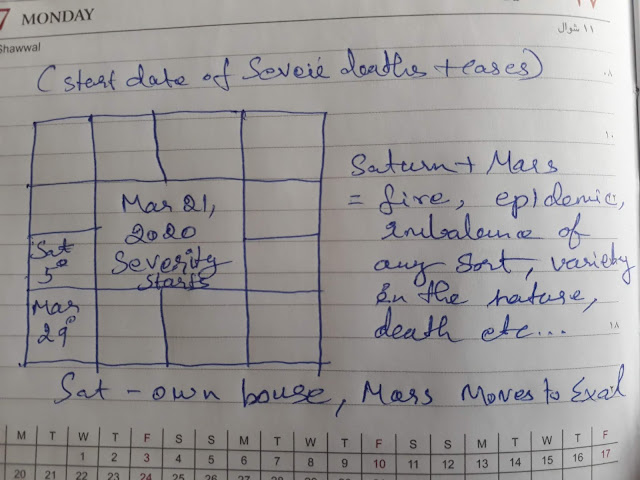 7 MONDAY
Shawwal
١١ شوال
(start date of Severe deaths + cases)
٠٨
١٠
Mar 21,
2020
Severity
starts
Sat
5°
Mar
29°
Saturn + Mars
= fire, epidemic,
imbalance of
any sort, variety
in the nature,
death etc...
١٨
Sat - own house, Mars Moves to Exal
M T W T F S S M T W T F S S M T W T F
1 2 3 4 5 6 7 8 9 10 11 12 13 14 15 16 17
20 21 22 23 24 25 26 27 28 29 30